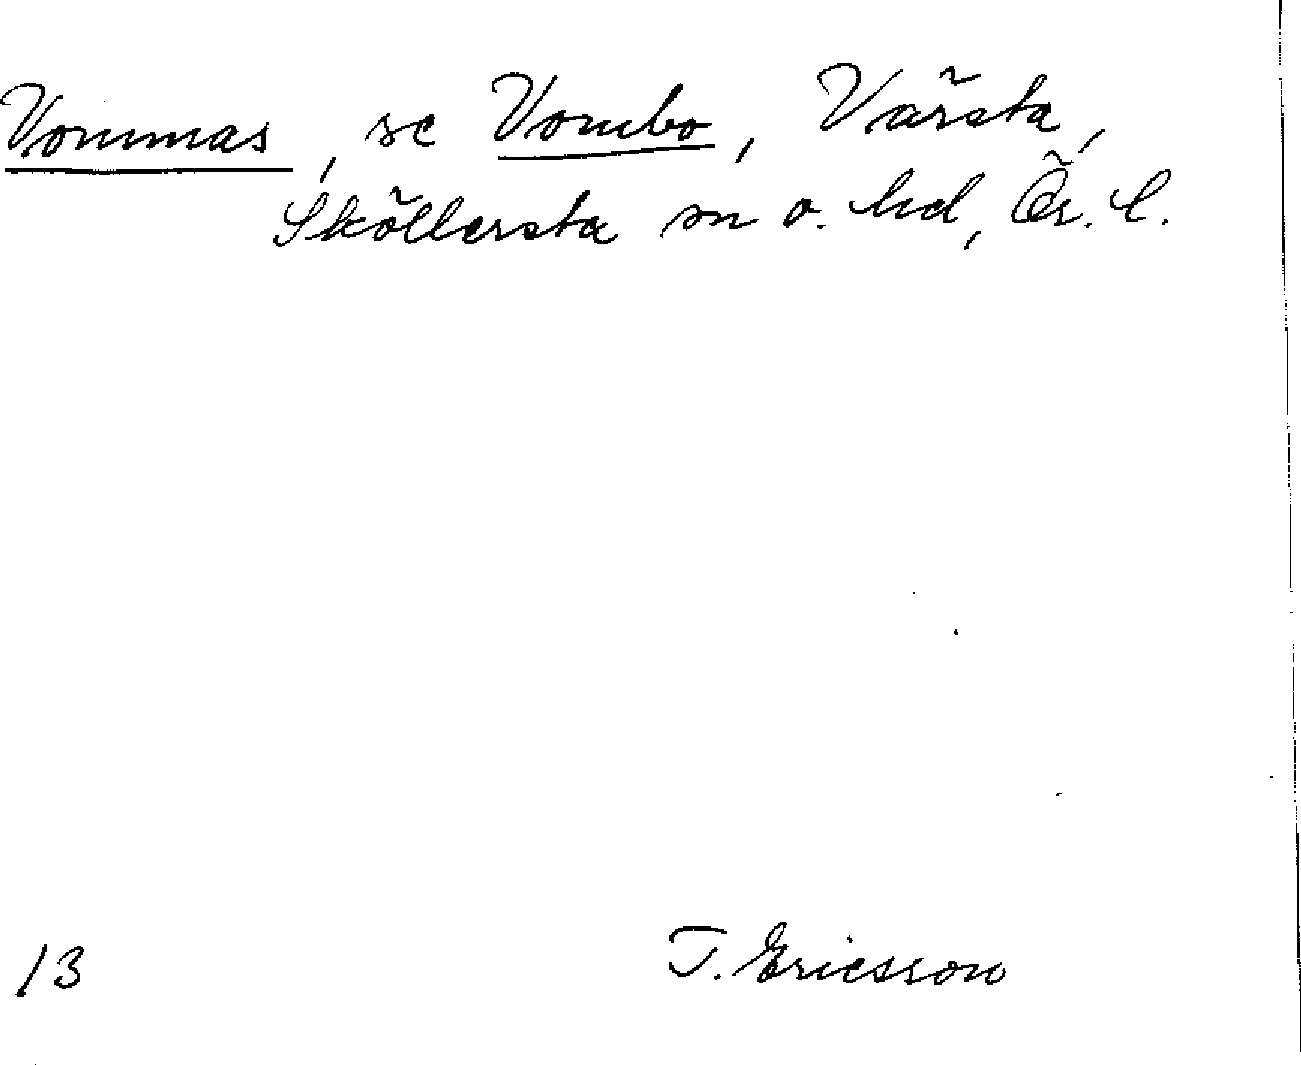 Vommas, se Vombo, Värsta,
Sköllersta sn o. hd, Ör. l.
13 T. Ericsson